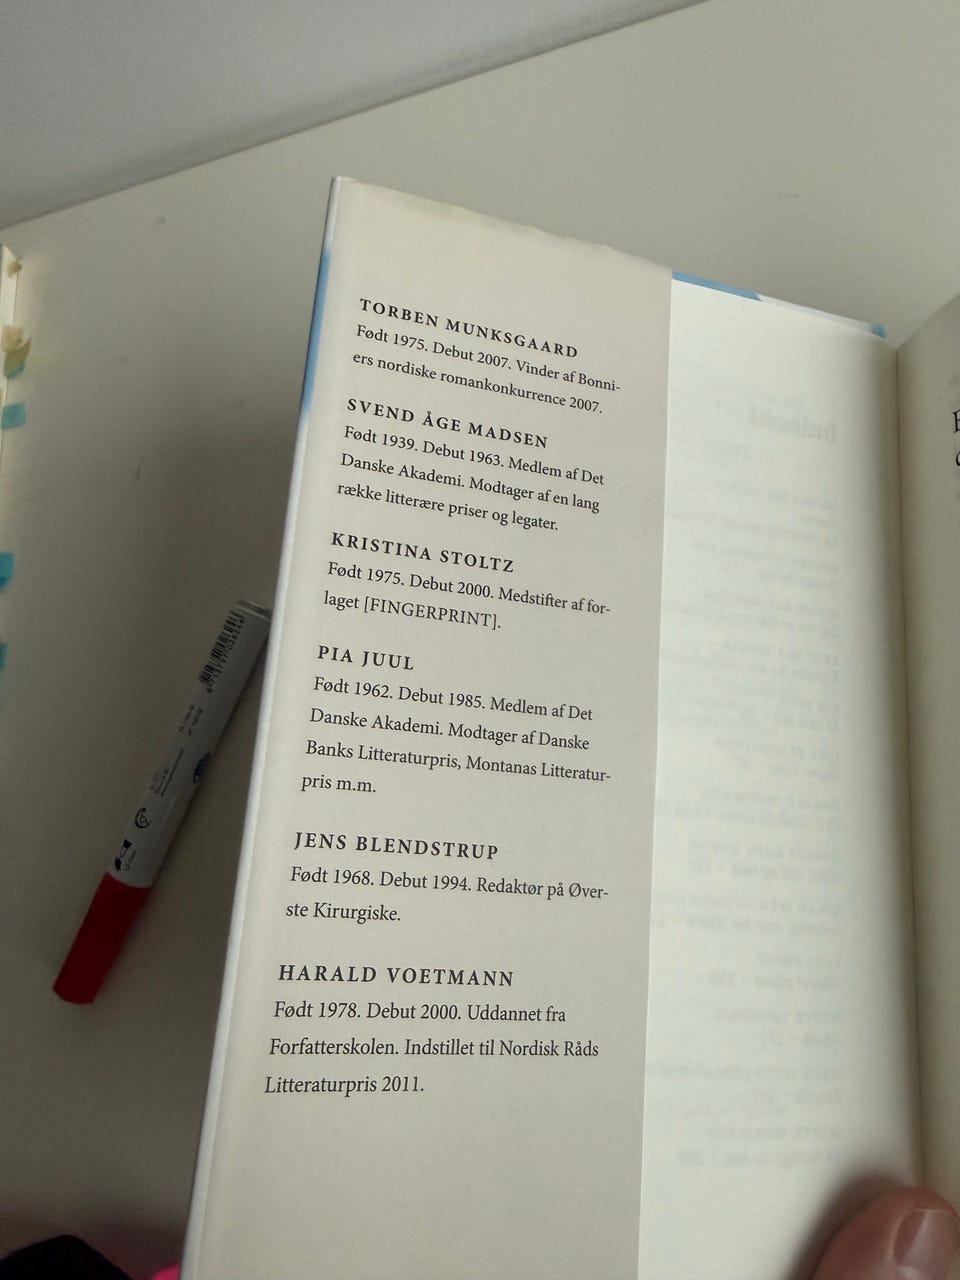 TORBEN MUNKSGAARD
Født 1975. Debut 2007. Vinder af Bonni-
ers nordiske romankonkurrence 2007.
SVEND ÅGE MADSEN
Født 1939. Debut 1963. Medlem af Det
Danske Akademi. Modtager af en lang
række litterære priser og legater.
KRISTINA STOLTZ
Født 1975. Debut 2000. Medstifter af for-
laget [FINGERPRINT].
PIA JUUL
Født 1962. Debut 1985. Medlem af Det
Danske Akademi. Modtager af Danske
Banks Litteraturpris, Montanas Litteratur-
pris m.m.
JENS BLENDSTRUP
Født 1968. Debut 1994. Redaktør på Øver-
ste Kirurgiske.
HARALD VOETMANN
Født 1978. Debut 2000. Uddannet fra
Forfatterskolen. Indstillet til Nordisk Råds
Litteraturpris 2011.